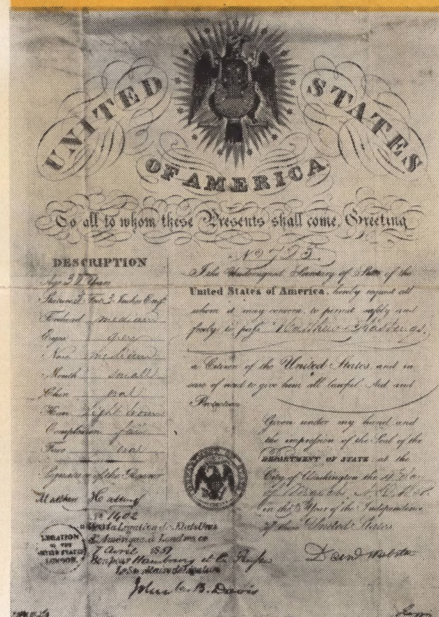 UNITED STATES
OF AMERICA
To all to whom these Presents shall come, Greeting
DESCRIPTION
Age Years
Stature Feet Inches Eng
Forehead medium
Eyes grey
Nose medium
Mouth small
Chin
Hair light brown
Complexion fair
Face
Signature of the Bearer
Matthew Hastings
I the Undersigned Secretary of State of the
United States of America, hereby request all
whom it may concern, to permit safely and
freely to pass Matthew Hastings
a Citizen of the United States, and in
case of need to give him all lawful Aid and
Protection
Given under my hand and
the impression of the Seal of the
DEPARTMENT OF STATE at the
City of Washington the
of March
in the Year of the Independence
of these United States
LEGATION
OF THE
UNITED STATES
LONDON
No 1402
Londres
7 Avril 1851
Bon pour Hambourg et la
John C. B. Davis